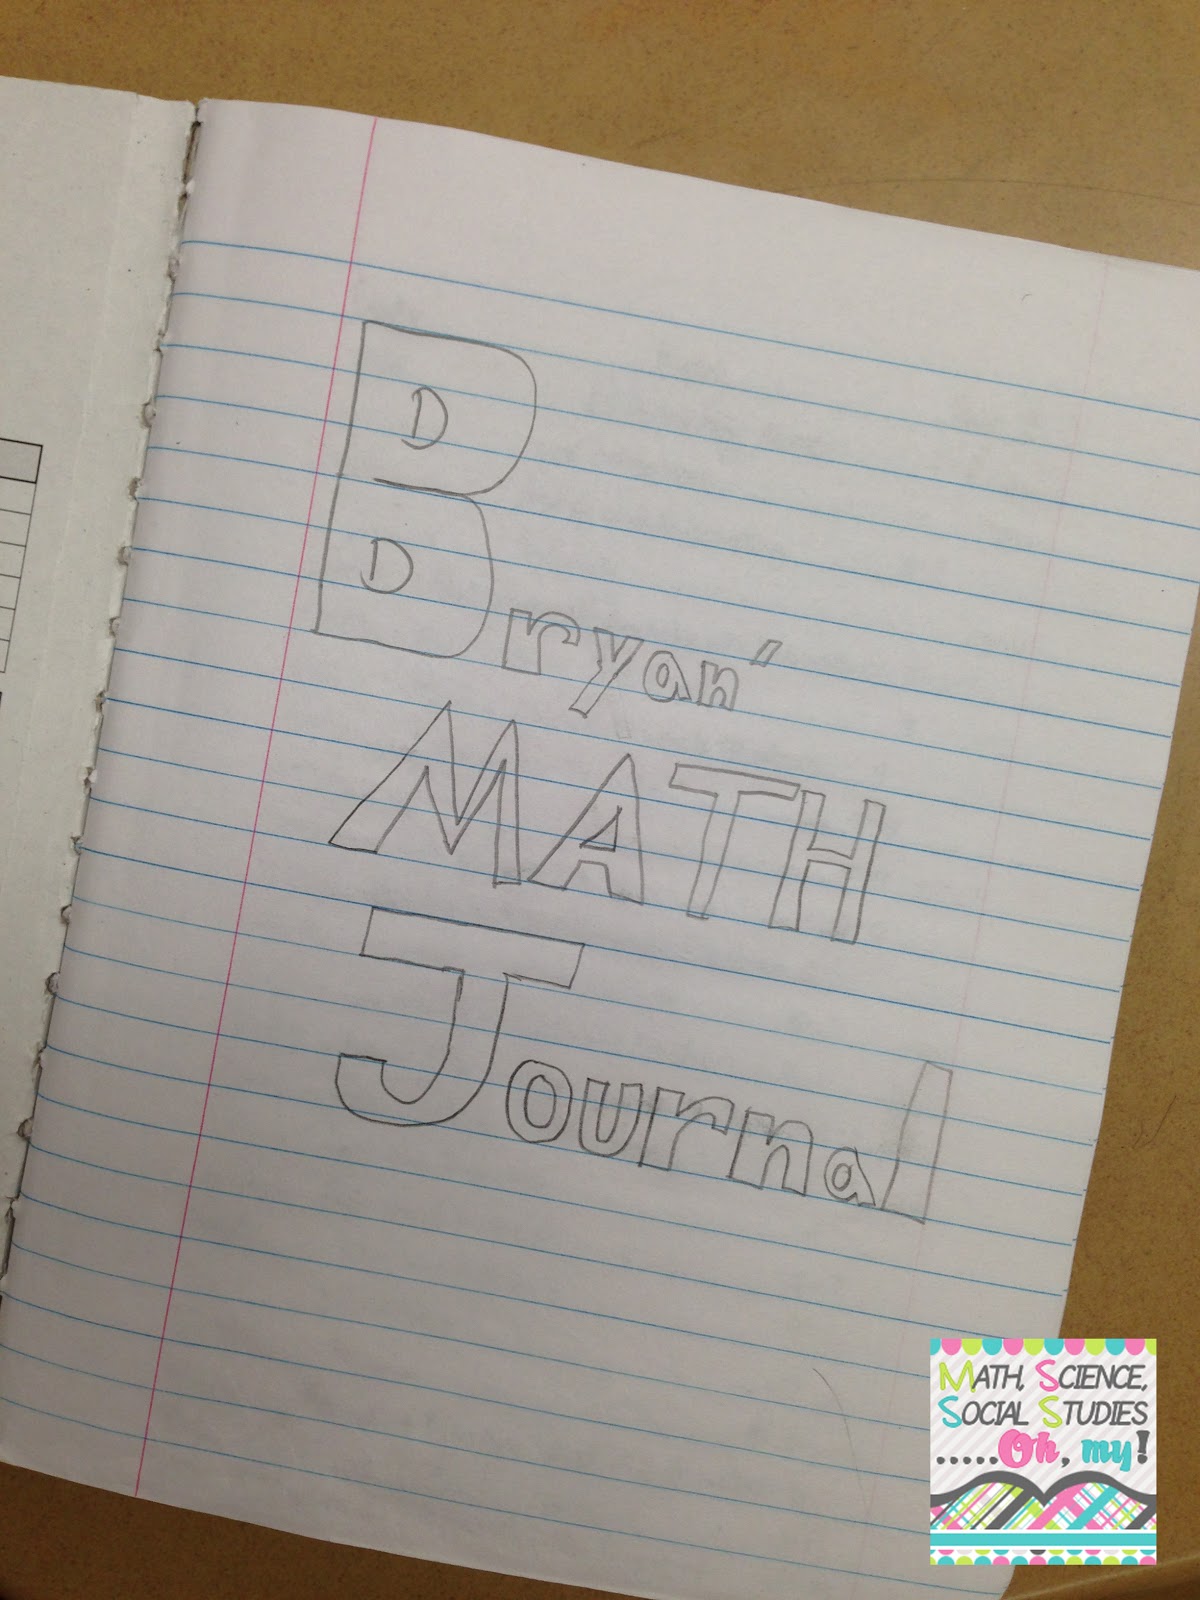 Bryan'
MATH
Journal
MATH, SCIENCE,
SOCIAL STUDIES
.....Oh, my!